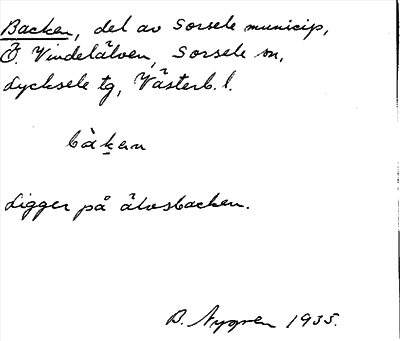 Backen, del av Sorsele municip,
Ö. Vindelälven, Sorsele sn,
Lycksele tg, Västerb. l.
bàkan
Ligger på älvsbacken.
B. Nygren 1935.